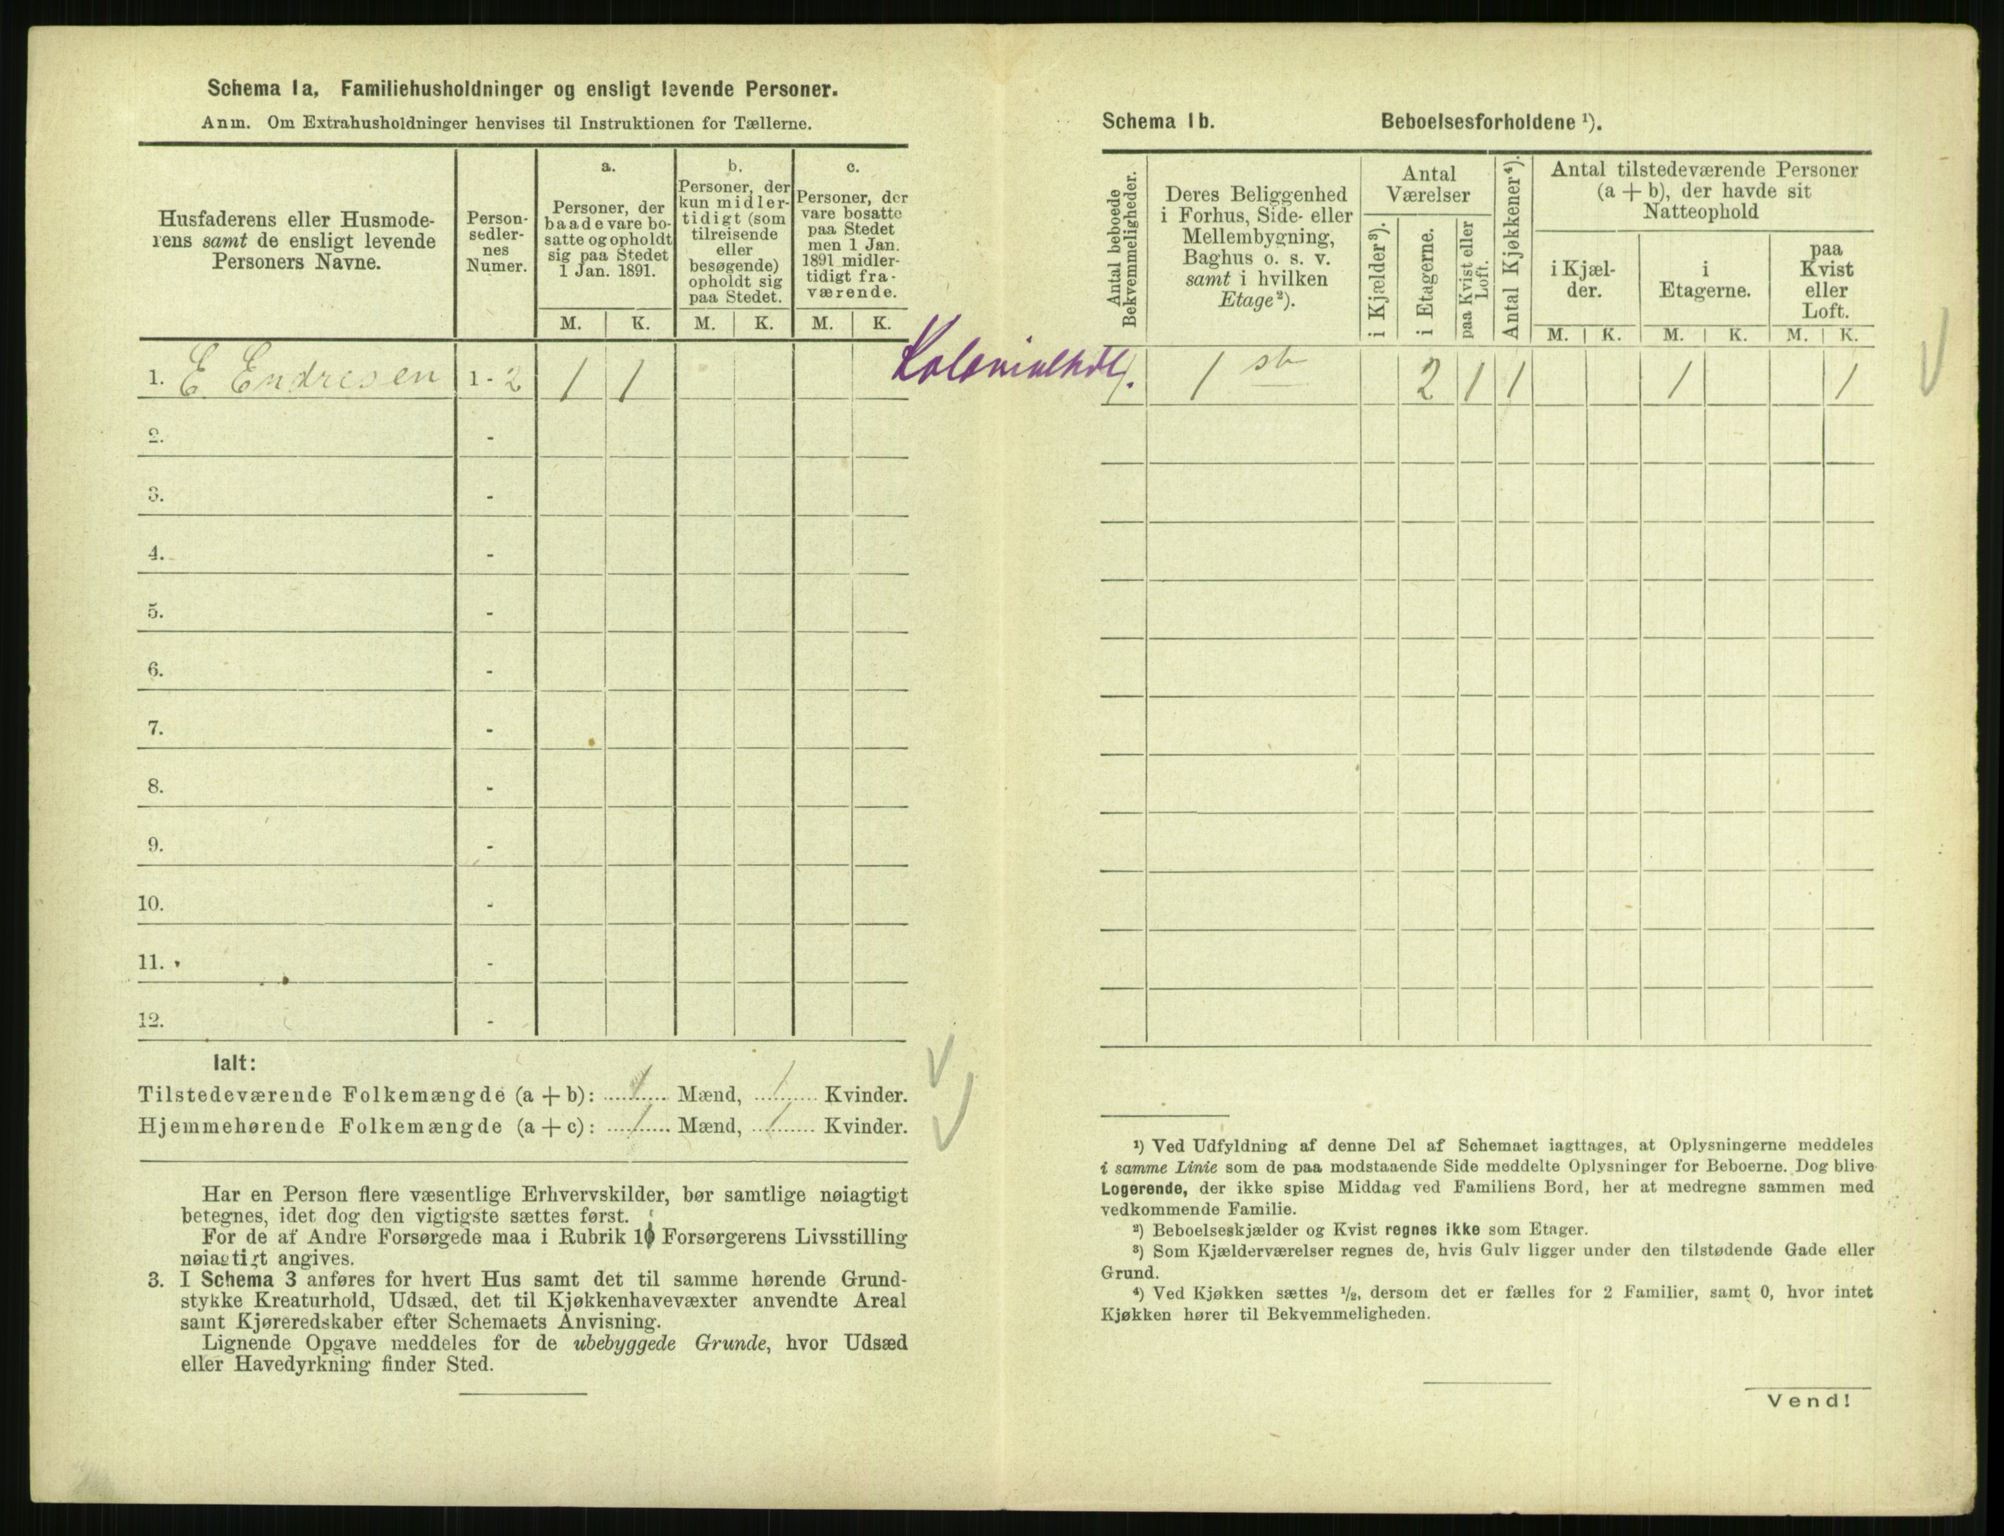 Schema 1a, Familiehusholdninger og ensligt levende Personer.
Anm. Om Extrahusholdninger henvises til Instruktionen for Tællerne.
Husfaderens eller Husmode-
rens samt de ensligt levende
Personers Navne.
Person-
sedler-
nes
Numer.
a.
Personer, der
baade vare bo-
satte og opholdt
sig paa Stedet
1 Jan. 1891.
b.
Personer, der
kun midler-
tidigt (som
tilreisende
eller
besøgende)
opholdt sig
paa Stedet.
c.
Personer, der
vare bosatte
paa Stedet
men 1 Jan.
1891 midler-
tidigt fra-
værende.
M. K. M. K. M. K.
1. E. Endresen 1 - 2 1 1
2. -
3. -
4. -
5. -
6. -
7. -
8. -
9. -
10. -
11. -
12. -
Ialt:
Tilstedeværende Folkemængde (a + b): 1 Mænd, 1 Kvinder.
Hjemmehørende Folkemængde (a + c): 1 Mænd, 1 Kvinder.
Har en Person flere væsentlige Erhvervskilder, bør samtlige nøiagtigt
betegnes, idet dog den vigtigste sættes først.
For de af Andre Forsørgede maa i Rubrik 10 Forsørgerens Livsstilling
nøiagtigt angives.
3. I Schema 3 anføres for hvert Hus samt det til samme hørende Grund-
stykke Kreaturhold, Udsæd, det til Kjøkkenhavevæxter anvendte Areal
samt Kjøreredskaber efter Schemaets Anvisning.
Lignende Opgave meddeles for de ubebyggede Grunde, hvor Udsæd
eller Havedyrkning finder Sted.
Schema 1b. Beboelsesforholdene ¹).
Antal beboede
Bekvemmeligheder.
Deres Beliggenhed
i Forhus, Side- eller
Mellembygning,
Baghus o. s. v.
samt i hvilken
Etage²).
Antal
Værelser
i Kjælder³).
i Etagerne.
paa Kvist eller
Loft.
Antal Kjøkkener⁴).
Antal tilstedeværende Personer
(a + b), der havde sit
Natteophold
i Kjæl-
der.
i
Etagerne.
paa
Kvist
eller
Loft.
M. K. M. K. M. K.
Kolonialhdl. 1 st 2 1 1 1 1
¹) Ved Udfyldning af denne Del af Schemaet iagttages, at Oplysningerne meddeles
i samme Linie som de paa modstaaende Side meddelte Oplysninger for Beboerne. Dog blive
Logerende, der ikke spise Middag ved Familiens Bord, her at medregne sammen med
vedkommende Familie.
²) Beboelseskjælder og Kvist regnes ikke som Etager.
³) Som Kjælderværelser regnes de, hvis Gulv ligger under den tilstødende Gade eller
Grund.
⁴) Ved Kjøkken sættes ½, dersom det er fælles for 2 Familier, samt 0, hvor intet
Kjøkken hører til Bekvemmeligheden.
Vend!